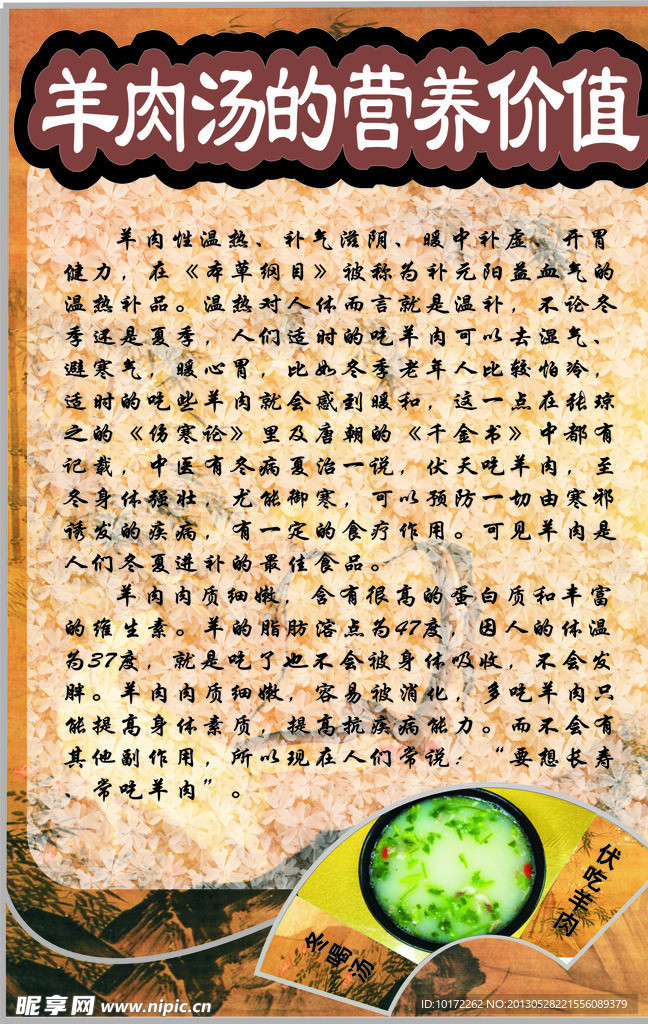 羊肉汤的营养价值
羊肉性温热、补气滋阴、暖中补虚、开胃
健力，在《本草纲目》被称为补元阳益血气的
温热补品。温热对人体而言就是温补，不论冬
季还是夏季，人们适时的吃羊肉可以去湿气、
避寒气，暖心胃，比如冬季老年人比较怕冷，
适时的吃些羊肉就会感到暖和，这一点在张琼
之的《伤寒论》里及唐朝的《千金书》中都有
记载，中医有冬病夏治一说，伏天吃羊肉，至
冬身体强壮，尤能御寒，可以预防一切由寒邪
诱发的疾病，有一定的食疗作用。可见羊肉是
人们冬夏进补的最佳食品。
羊肉肉质细嫩，含有很高的蛋白质和丰富
的维生素。羊的脂肪溶点为47度，因人的体温
为37度，就是吃了也不会被身体吸收，不会发
胖。羊肉肉质细嫩，容易被消化，多吃羊肉只
能提高身体素质，提高抗疾病能力。而不会有
其他副作用，所以现在人们常说：“要想长寿
、常吃羊肉”。
伏吃羊肉
冬喝汤
昵享网 www.nipic.cn
ID:10172262 NO:20130528221556089379